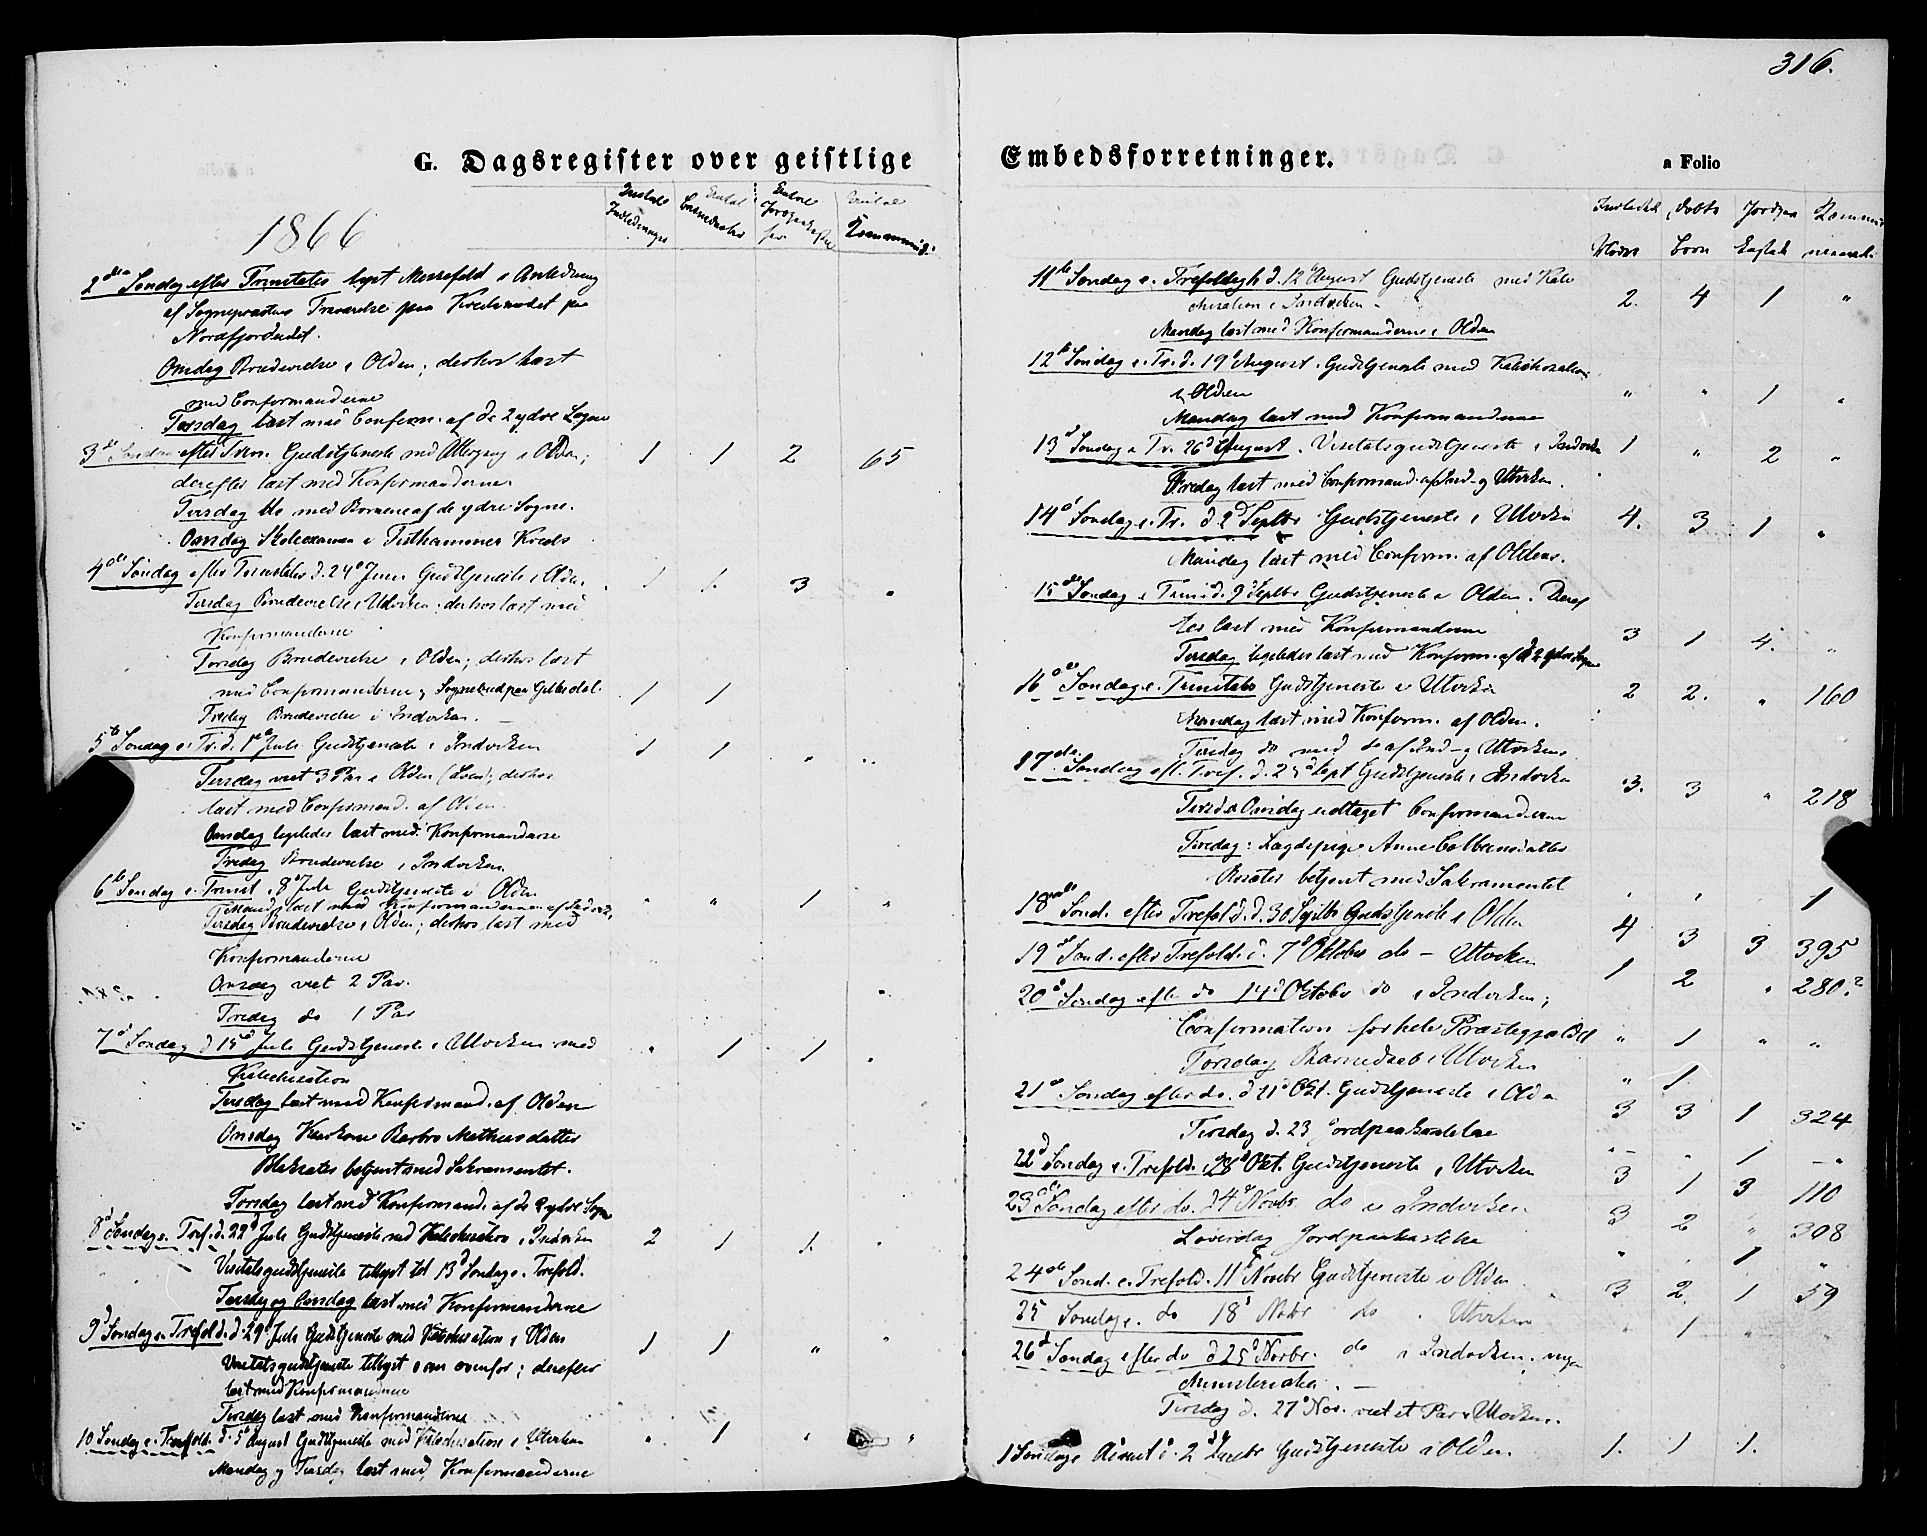 316.
G. Dagsregister over geistlige Embedsforretninger. a Folio
1866
2den Søndag efter Trinitatis lyst Messefald i Anledning
af Sognepræstens Fraværelse paa
Nordfjordeidet.
Onsdag Brudevielse i Olden; derhos læst
med Confirmanderne
Torsdag læst med Confirm. af de 2 ydre Sogne
3de Søndag efter Trin. Gudstjeneste med Altergang i Olden; 1 1 2 65
derefter læst med Konfirmanderne
Tirsdag do med Børnene af de ydre Sogne.
Onsdag Skoleexamen i Kreds
4de Søndag efter Trinitatis d. 24d Juni Gudstjeneste i Olden. 1 1. 3 "
Tirsdag Brudevielse i Utviken; derhos læst med
Konfirmanderne
Torsdag Brudevielse i Olden; derhos læst
med Confirmanderne og Sognebud paa 1 1
Fredag Brudevielse i Indviken. —
5te Søndag e. Tr. d. 1d Juli Gudstjeneste i Indviken 1 1 " "
Tirsdag viet 3 Par i Olden (Loen), derhos
læst med Confirmand. af Olden.
Onsdag ligeledes læst med Konfirmanderne
Fredag Brudevielse i Indviken.
6te Søndag e. Trinit. 8d Juli Gudstjeneste i Olden " " 1 "
Tirsdag Brudevielse i Olden; derhos læst med
Konfirmanderne
Onsdag viet 2 Par.
Fredag do 1 Par
7d Søndag d 15d Juli Gudstjeneste i Utviken med " 1 1 "
Katechisation
Tirsdag læst med Konfirmand. af Olden
Onsdag Huskone Barbro Mathiasdatter
betjent med Sakramentet.
Torsdag læst med Konfirmand. af de 2 ydre Sogne
8d Søndag e. Tref. d. 22d Juli Gudstjeneste med Katechisation i Indviken 2 1 1. "
Visitatsgudstjeneste tillyst til 13d Søndag e. Trefold.
Tirsdag og Onsdag læst med Konfirmanderne
9d Søndag e. Trefold. d. 29d Juli Gudstjeneste med Katechisation i Olden 1 1 " "
Visitatsgudstjeneste tillyst som ovenfor; derefter
læst med Konfirmanderne
Tirsdag læst med Konfirmanderne
10 Søndag e. Trefold. d. 5d August Gudstjeneste med Katechisation i Utviken " 1 " "
Mandag og Tirsdag læst med Konfirmanderne
11te Søndag e. Trefoldigh d. 12d August Gudstjeneste med Kate
chisation i Indviken 2. 4 1 "
Mandag læst med Konfirmanderne i Olden
12te Søndag e. Tr. d. 19d August. Gudstjeneste med Katechisation
i Olden " " 1 "
Mandag læst med Konfirmanderne
13d Søndag e Tr. 26d August. Visitatsgudstjeneste i Indviken 1 " 2 "
Fredag læst med Confirmand. af Ind- og Utviken.
14d Søndag e. Tr. d 2d Septbr Gudstjeneste i Utviken 4. 3 1 "
Mandag læst med Confirm. af Olden.
15de Søndag e Trin. d. 9d Septbr Gudstjeneste i Olden. Deref
ter læst med Konfirmanderne 3 1 4. "
Tirsdag ligeledes læst med Konfirm. af de 2 ydre Sogne
16de Søndag e. Trinitatis Gudstjeneste i Utviken 2 2. " 160
Mandag læst med Konfirm. af Olden.
Tirsdag do med do af Ind- og Utviken.
17de Søndag eft. Tref. d. 23d Sept Gudstjeneste i Indviken 3. 3 " 218
Tirsd. & Onsdag udtaget Confirmanderne
Tirsdag: Lægdepige Anne
betjent med Sakramentet " " " 1
18de Sønd. efter Trefold. d. 30 Septbr Gudstjeneste i Olden 4 3 3 395
19d Sønd. efter Trefold. d. 7d Oktober do — Utviken 1 2 " 280?
20d Søndag efter do 14d Oktober do i Indviken;
Confirmation for hele Præstegjældet " 1 " "
Torsdag Barnedaab i Utviken " 1.
21d Søndag efter do. d 21d Okt. Gudstjeneste i Olden 3 3 1 324
Tirsdag d. 23 Jordpaakastelse " — " 1 — "
22d Søndag e. Trefold. 28d Okt. Gudstjeneste i Utviken 3 1 3 110
23de Søndag efter do. d 4d Novbr do i Indviken 3 2 " 308
Løverdag Jordpaakastelse " 1 "
24de Sønd. e. Trefold. 11d Novbr Gudstjeneste i Olden 3 2. 1 59
25 Søndag e. do 18d Nvbr do . Utviken " 1 " "
26d Søndag efter do d 25d Novbr. do i Indviken. ingen
Ministerialia. —
Tirsdag d. 27d Nov. viet et Par i Utviken.
1 Søndag i Advent d. 2d Decbr Gudstjeneste i Olden. 1. 1 1.